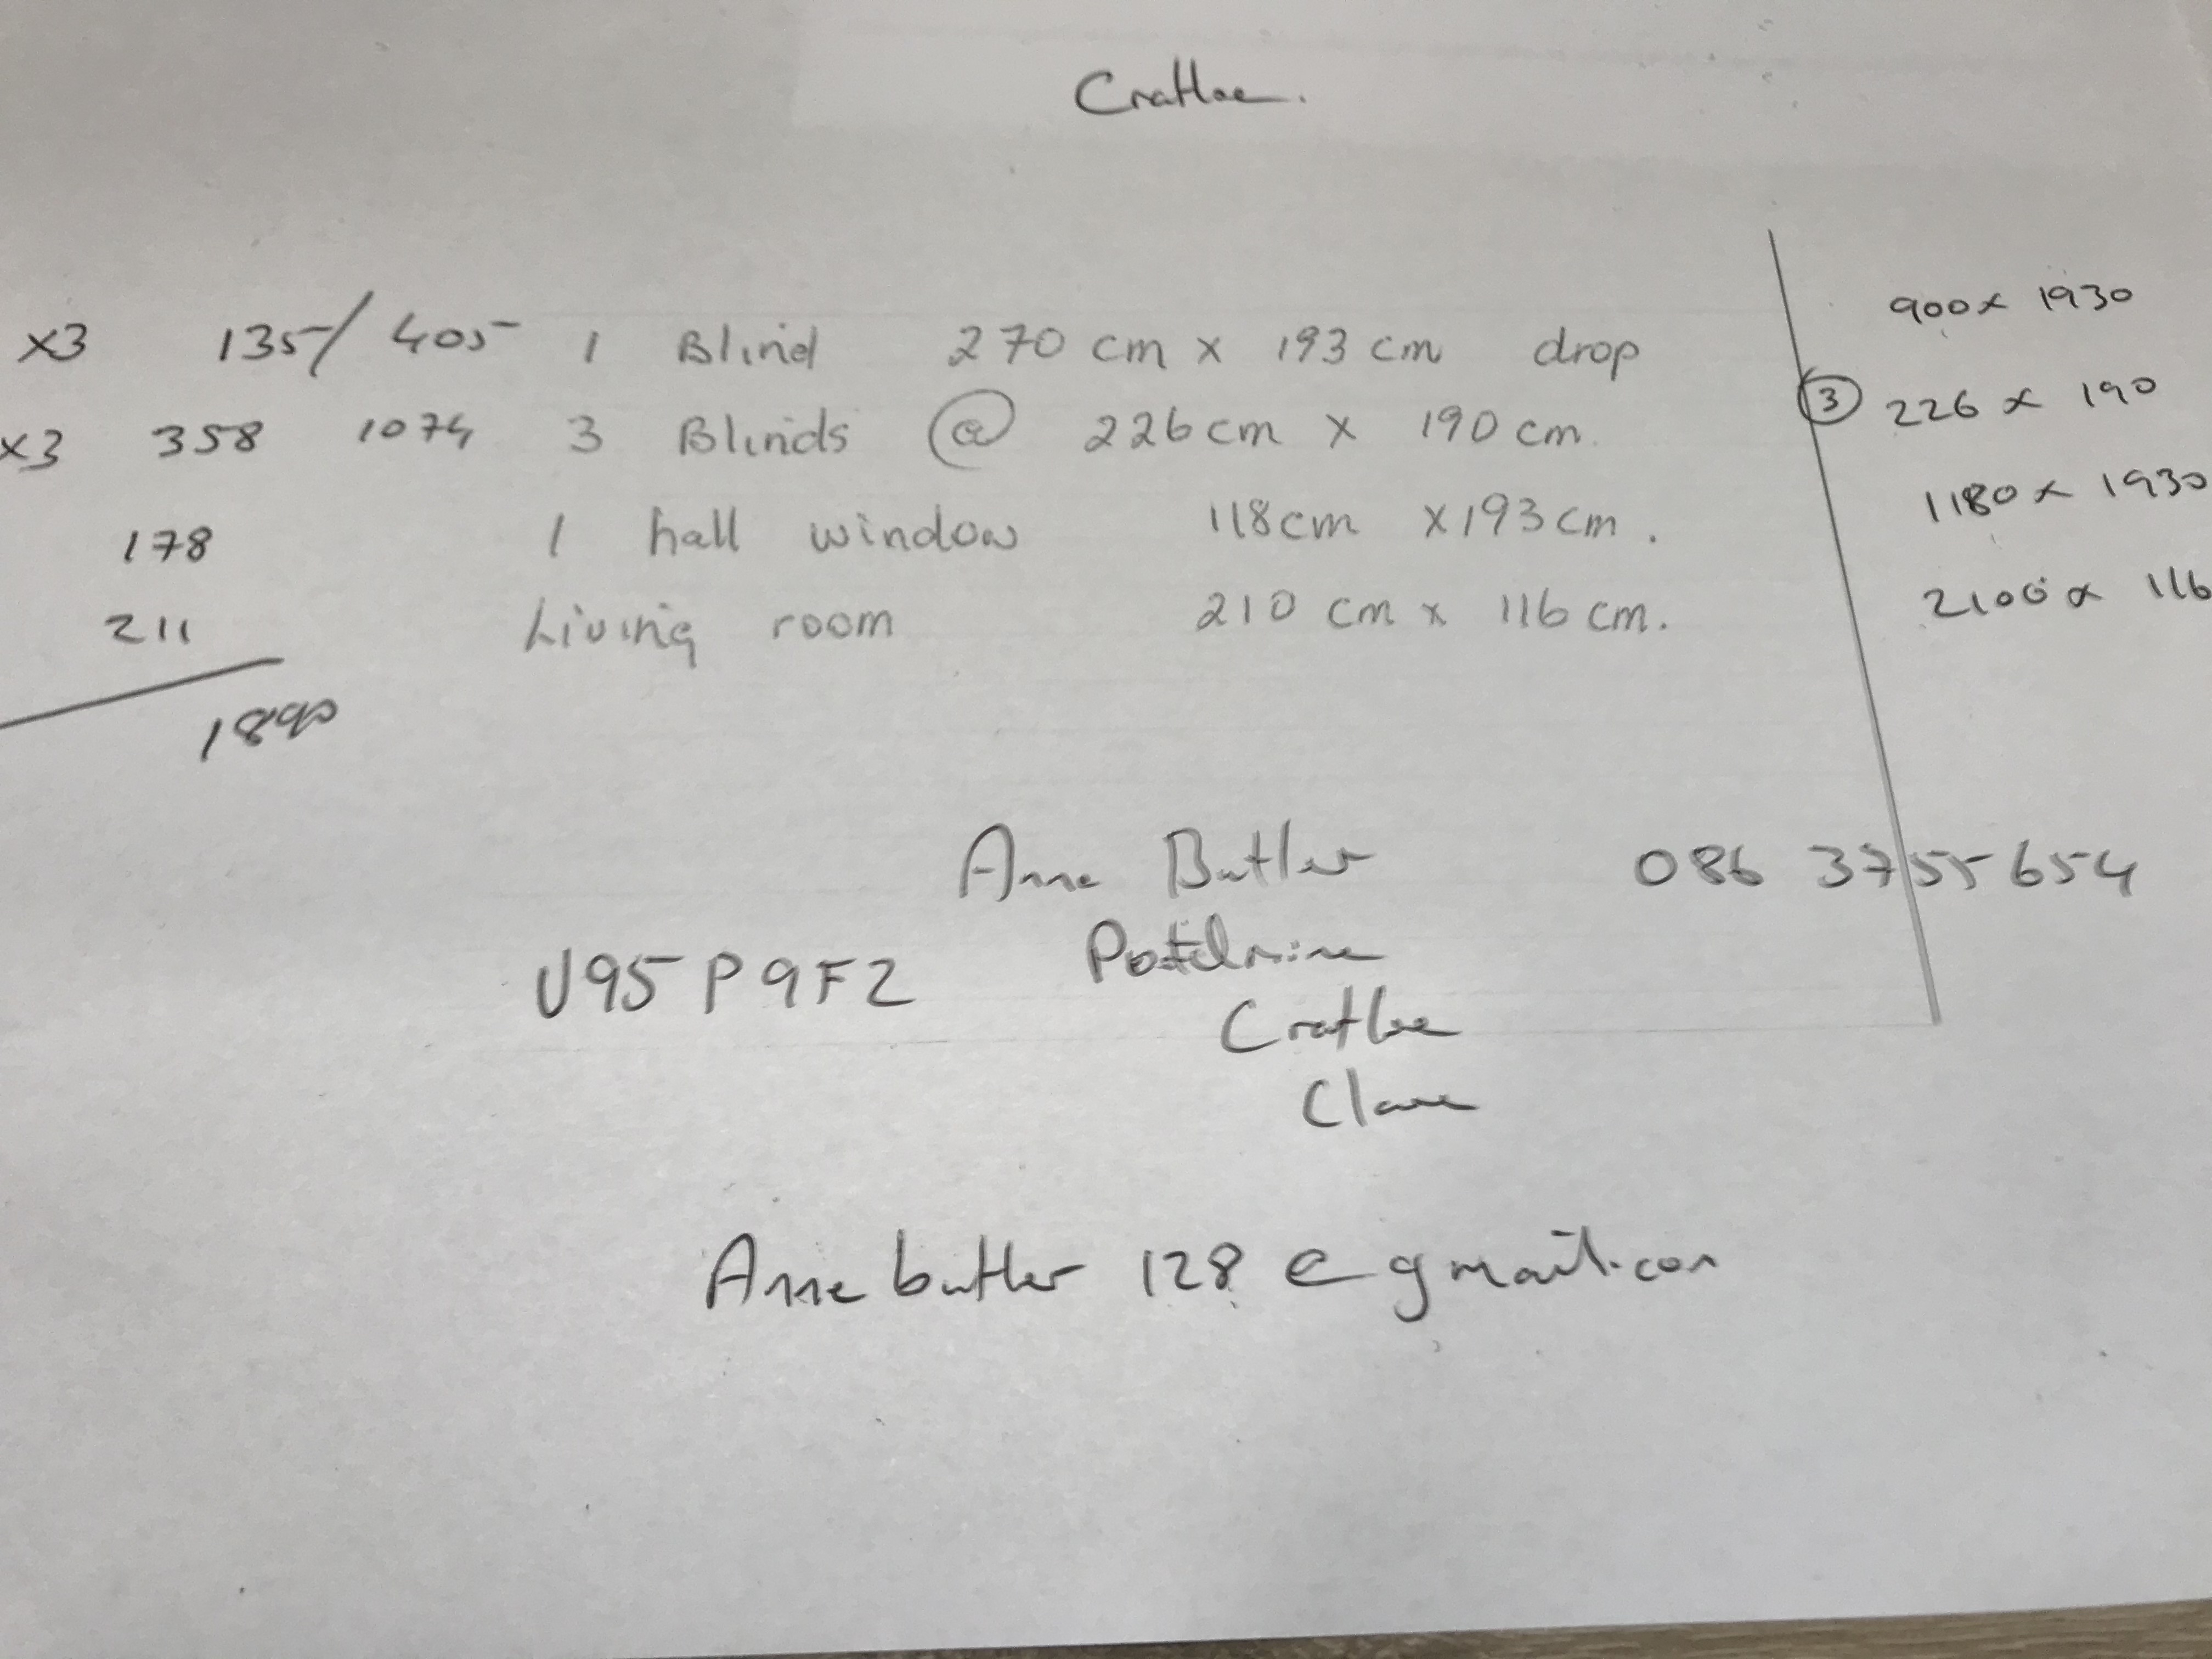 Cratloe.
x3 135/ 405 1 Blind 270 cm x 193 cm drop 900 x 1930
x3 358 1074 3 Blinds @ 226 cm x 190 cm. 3 226 x 190
178 1 hall window 118cm x 193 cm. 1180 x 1930
211 Living room 210 cm x 116 cm. 2100 x 116
1890
Anne Butler 086 3755654
U95 P9F2
Cratloe
Clare
Anne butler 128 @ gmail.com